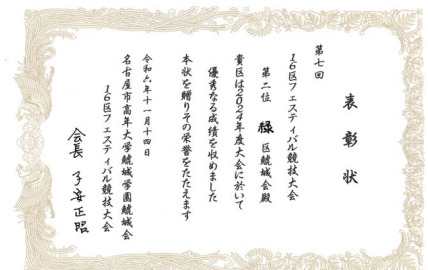 表彰状
第七回
16区フェスティバル競技大会
第二位 緑区鯱城会殿
貴区は2024年度大会に於いて
優秀なる成績を収めました
本状を贈りその栄誉をたたえます
令和六年十一月十四日
名古屋市高年大学鯱城学園鯱城会
16区フェスティバル競技大会
会長 子安正昭